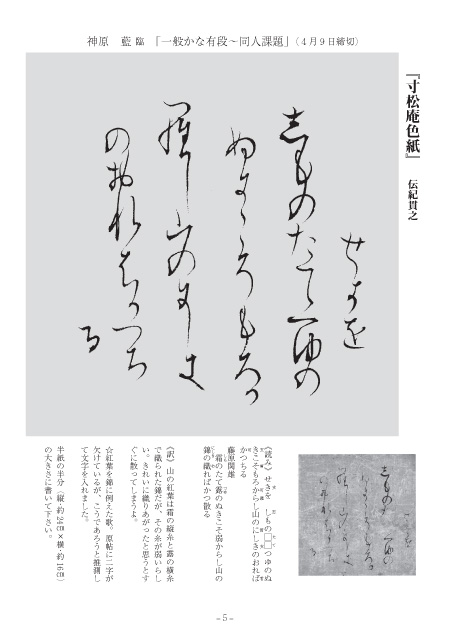 神原 藍 臨 「一般かな有段~同人課題」(4月9日締切)
『寸松庵色紙』 伝紀貫之
せきを
しものたてつゆの
ぬきこそもろか
らし山のにしき
のおればかつち
る
《読み》 せきを しもの□□つゆのぬ
きこそもろからし山のにしきのおれば
かつちる
藤原関雄
霜のたて露のぬきこそ弱からし山の
錦の織ればかつ散る
《訳》 山の紅葉は霜の縦糸と露の横糸
で織られた錦だが、その糸が弱いらし
い。きれいに織りあがったと思うとす
ぐに散ってしまうよ。
☆紅葉を錦に例えた歌。原帖に二字が
欠けているが、こうであろうと推測し
て文字を入れました。
半紙の半分(縦・約24㎝×横・約16㎝)
の大きさに書いて下さい。
-5-